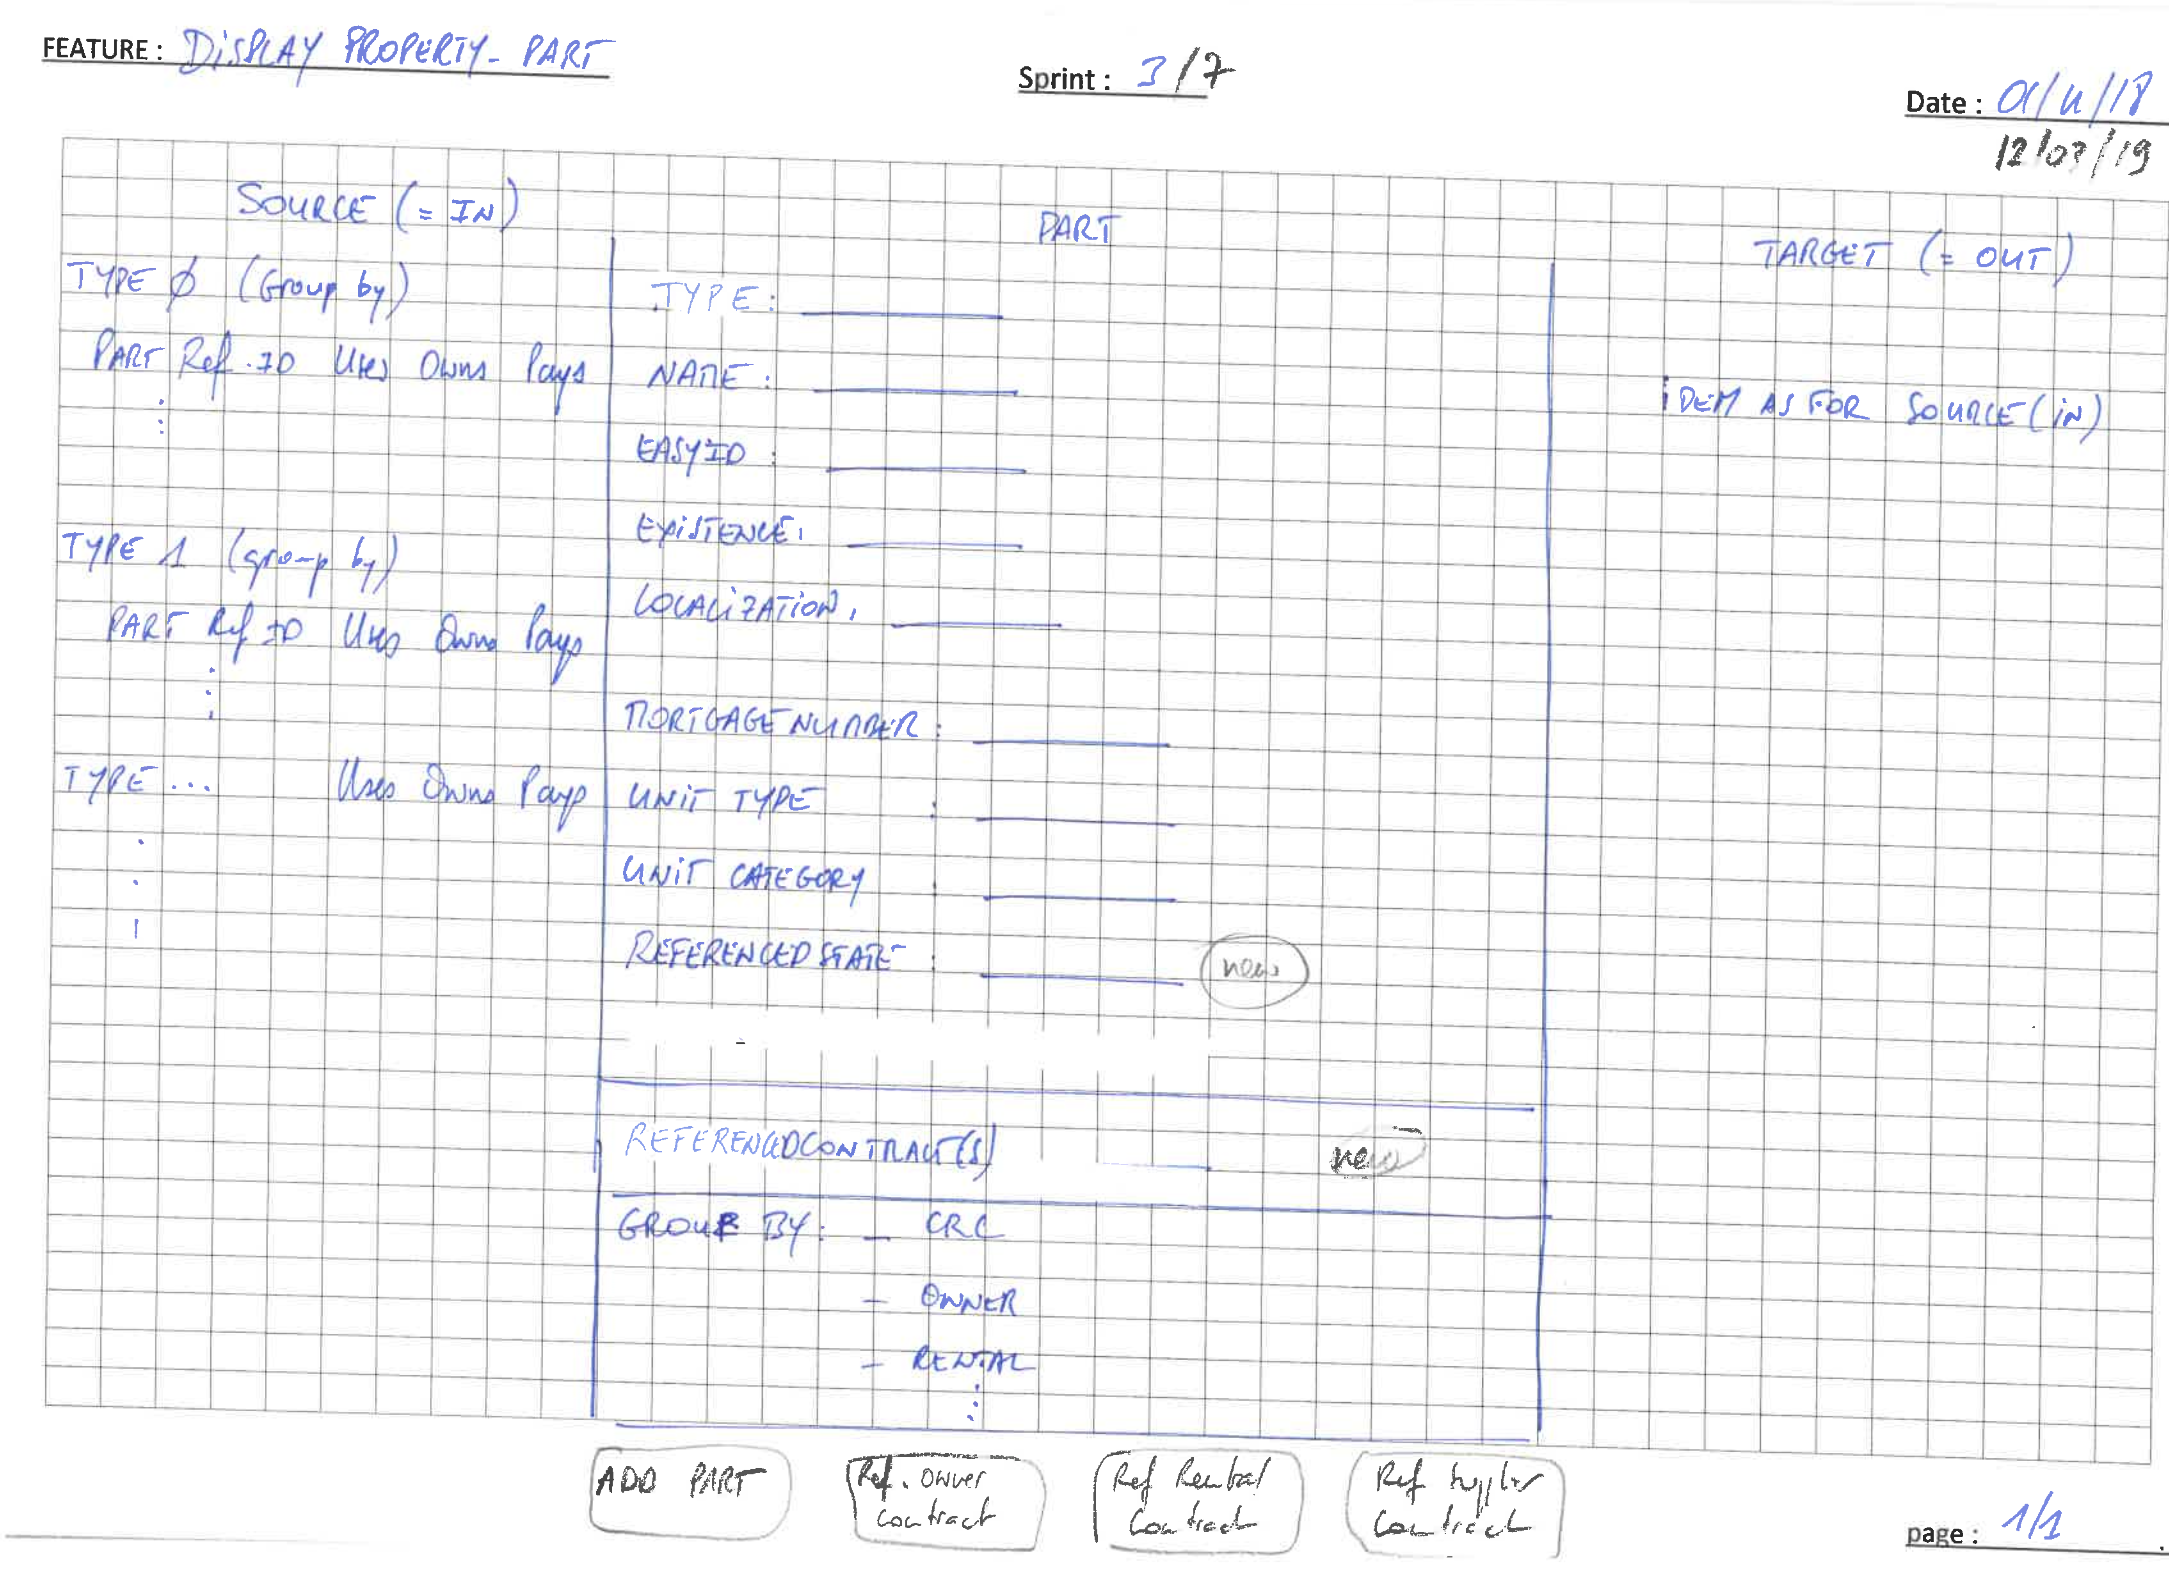 FEATURE : DISPLAY PROPERTY - PART
Sprint : 3/7
Date : 01/11/18
12/03/19
SOURCE (= IN)
PART
TARGET (= OUT)
TYPE Ø (Group by)
PART Ref. ID Uses Owns Pays
TYPE 1 (group by)
PART Ref ID Uses Owns Pays
TYPE ... Uses Owns Pays
TYPE :
NAME :
EASYID :
EXISTENCE :
LOCALIZATION :
MORTGAGE NUMBER :
UNIT TYPE :
UNIT CATEGORY :
REFERENCED STATE : new
REFERENCED CONTRACT(S) new
GROUP BY : - CRC
- OWNER
- RENTAL
IDEM AS FOR SOURCE (IN)
ADD PART
Ref. owner
contract
Ref Rental
Contract
Ref Supplier
Contract
page : 1/1